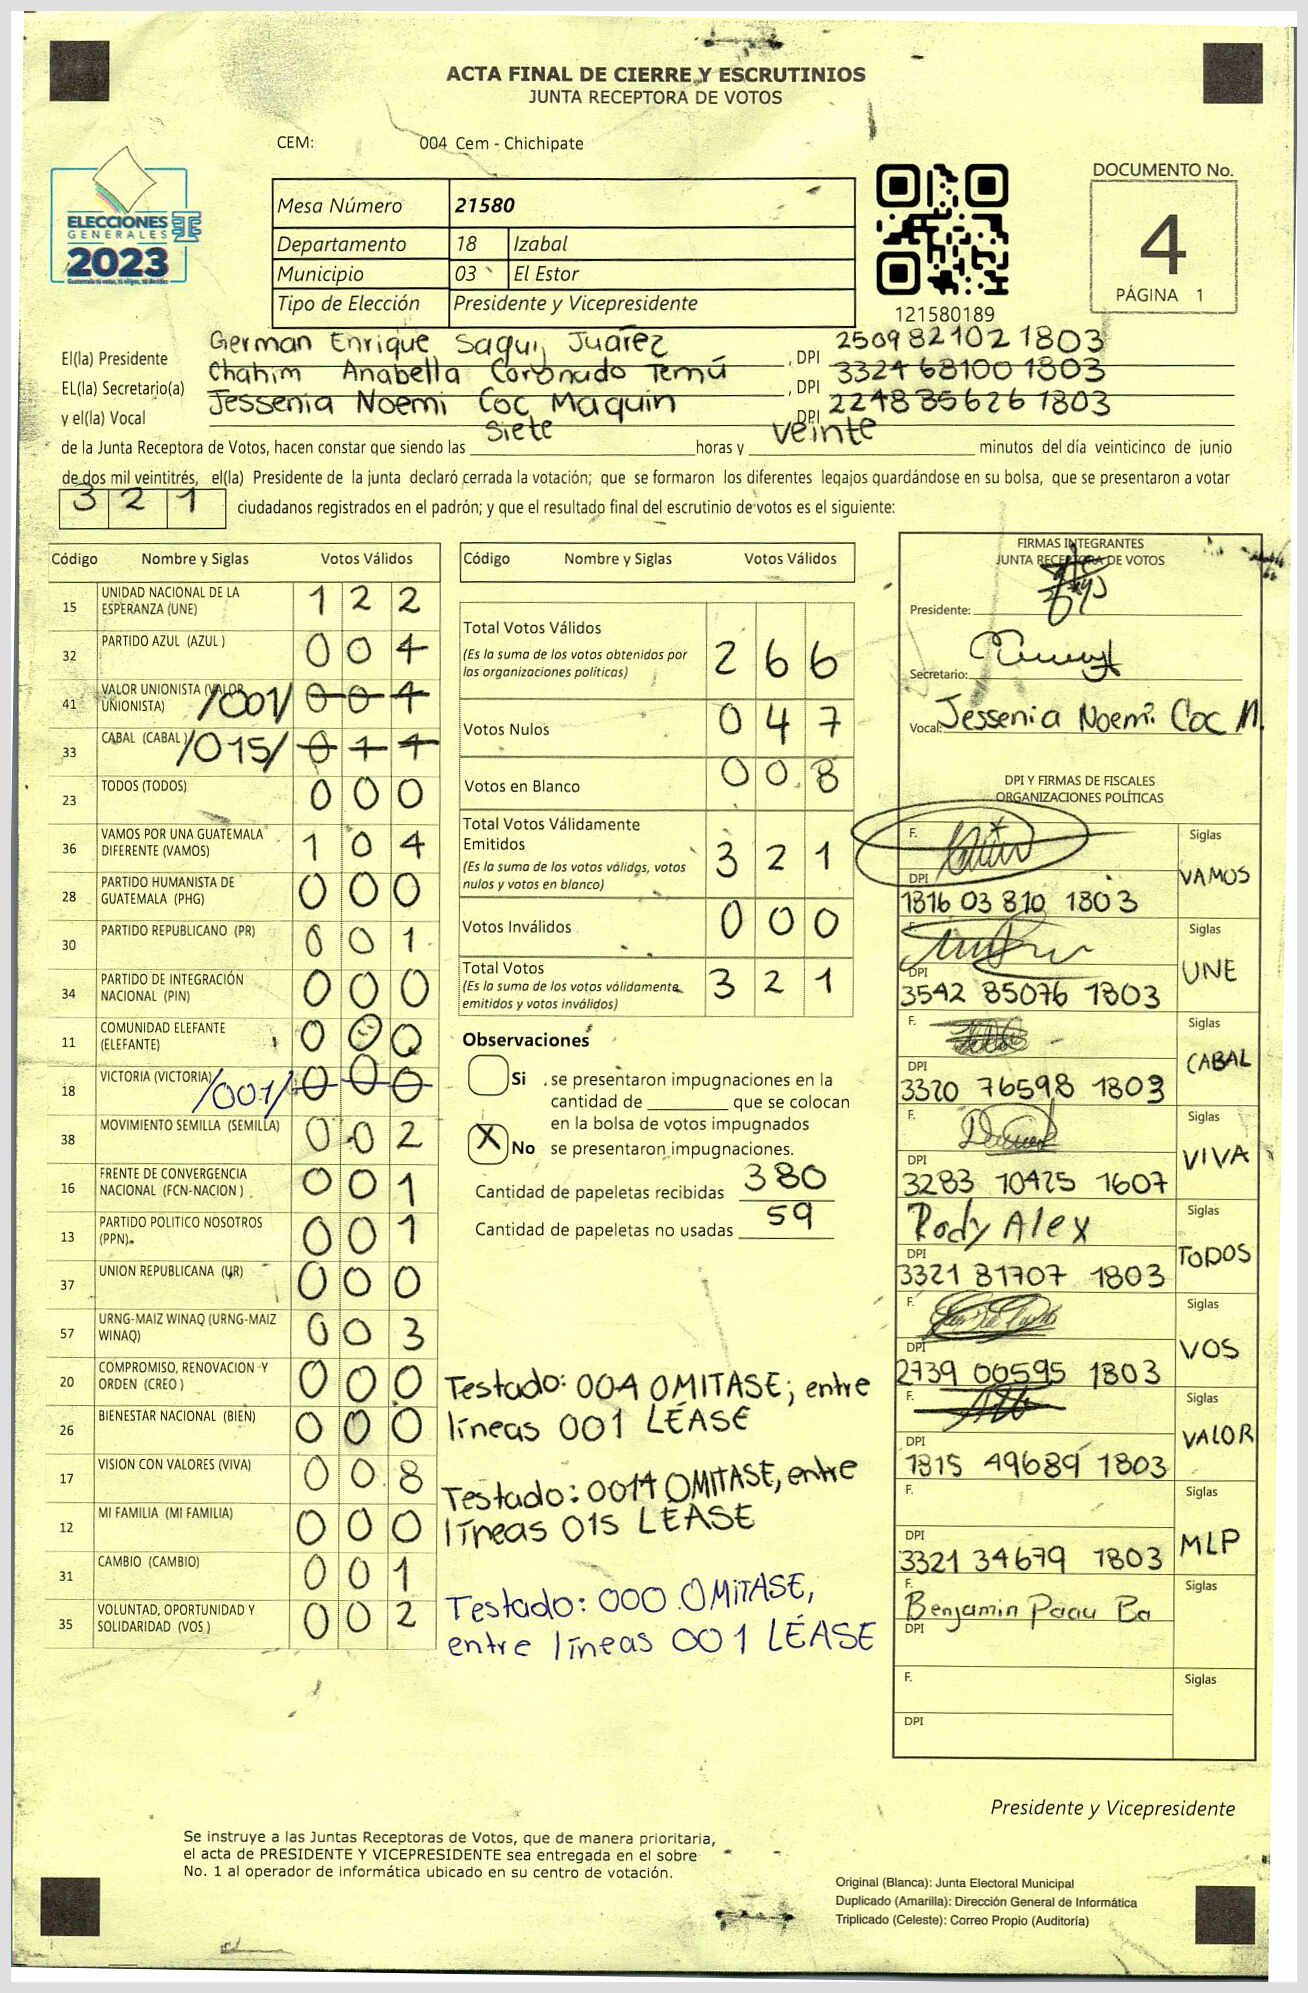 ACTA FINAL DE CIERRE Y ESCRUTINIOS
JUNTA RECEPTORA DE VOTOS
CEM: 004 Cem - Chichipate
ELECCIONES
GENERALES
2023
Mesa Número 21580
Departamento 18 Izabal
Municipio 03 El Estor
Tipo de Elección Presidente y Vicepresidente
121580189
DOCUMENTO No.
4
PÁGINA 1
El(la) Presidente German Enrique Saqui Juárez, DPI 2509 82102 1803
EL(la) Secretario(a) Chahim Anabella Coronado Temú, DPI 3324 68100 1803
y el(la) Vocal Jessenia Noemi Coc Maquin DPI 2248 35626 1803
de la Junta Receptora de Votos, hacen constar que siendo las siete horas y veinte minutos del día veinticinco de junio
de dos mil veintitrés, el(la) Presidente de la junta declaró cerrada la votación; que se formaron los diferentes legajos guardándose en su bolsa, que se presentaron a votar
321 ciudadanos registrados en el padrón; y que el resultado final del escrutinio de votos es el siguiente:
Código Nombre y Siglas Votos Válidos
15 UNIDAD NACIONAL DE LA ESPERANZA (UNE) 1 2 2
32 PARTIDO AZUL (AZUL ) 0 0 4
41 VALOR UNIONISTA (VALOR UNIONISTA) /001/ 0 0 4
33 CABAL (CABAL ) /015/ 0 1 4
23 TODOS (TODOS) 0 0 0
36 VAMOS POR UNA GUATEMALA DIFERENTE (VAMOS) 1 0 4
28 PARTIDO HUMANISTA DE GUATEMALA (PHG) 0 0 0
30 PARTIDO REPUBLICANO (PR) 0 0 1
34 PARTIDO DE INTEGRACIÓN NACIONAL (PIN) 0 0 0
11 COMUNIDAD ELEFANTE (ELEFANTE) 0 0 0
18 VICTORIA (VICTORIA) /001/ 0 0 0
38 MOVIMIENTO SEMILLA (SEMILLA) 0 0 2
16 FRENTE DE CONVERGENCIA NACIONAL (FCN-NACION ) 0 0 1
13 PARTIDO POLITICO NOSOTROS (PPN) 0 0 1
37 UNION REPUBLICANA (UR) 0 0 0
57 URNG-MAIZ WINAQ (URNG-MAIZ WINAQ) 0 0 3
20 COMPROMISO, RENOVACION Y ORDEN (CREO ) 0 0 0
26 BIENESTAR NACIONAL (BIEN) 0 0 0
17 VISION CON VALORES (VIVA) 0 0 8
12 MI FAMILIA (MI FAMILIA) 0 0 0
31 CAMBIO (CAMBIO) 0 0 1
35 VOLUNTAD, OPORTUNIDAD Y SOLIDARIDAD (VOS ) 0 0 2
Código Nombre y Siglas Votos Válidos
Total Votos Válidos 2 6 6
(Es la suma de los votos obtenidos por
las organizaciones políticas)
Votos Nulos 0 4 7
Votos en Blanco 0 0 8
Total Votos Válidamente
Emitidos 3 2 1
(Es la suma de los votos válidos, votos
nulos y votos en blanco)
Votos Inválidos 0 0 0
Total Votos 3 2 1
(Es la suma de los votos válidamente
emitidos y votos inválidos)
Observaciones
Si se presentaron impugnaciones en la
cantidad de ________ que se colocan
en la bolsa de votos impugnados
X No se presentaron impugnaciones.
Cantidad de papeletas recibidas 380
Cantidad de papeletas no usadas 59
Testado: 004 OMITASE; entre
líneas 001 LÉASE
Testado: 0014 OMITASE, entre
líneas 015 LÉASE
Testado: 000 OMITASE,
entre líneas 001 LÉASE
FIRMAS INTEGRANTES
JUNTA RECEPTORA DE VOTOS
Presidente:
Secretario:
Vocal: Jessenia Noemi Coc M.
DPI Y FIRMAS DE FISCALES
ORGANIZACIONES POLÍTICAS
F. Siglas VAMOS
DPI 1816 03 810 1803
F. Siglas UNE
DPI 3542 85076 1803
F. Siglas CABAL
DPI 3320 76598 1803
F. Siglas VIVA
DPI 3283 10425 1607
Rody Alex Siglas TODOS
DPI 3321 81707 1803
F. Siglas VOS
DPI 2739 00595 1803
F. Siglas VALOR
DPI 1815 49689 1803
F. Siglas MLP
DPI 3321 34679 1803
F. Benjamin Paau Ba Siglas
DPI
F. Siglas
DPI
Presidente y Vicepresidente
Se instruye a las Juntas Receptoras de Votos, que de manera prioritaria,
el acta de PRESIDENTE Y VICEPRESIDENTE sea entregada en el sobre
No. 1 al operador de informática ubicado en su centro de votación.
Original (Blanca): Junta Electoral Municipal
Duplicado (Amarilla): Dirección General de Informática
Triplicado (Celeste): Correo Propio (Auditoría)